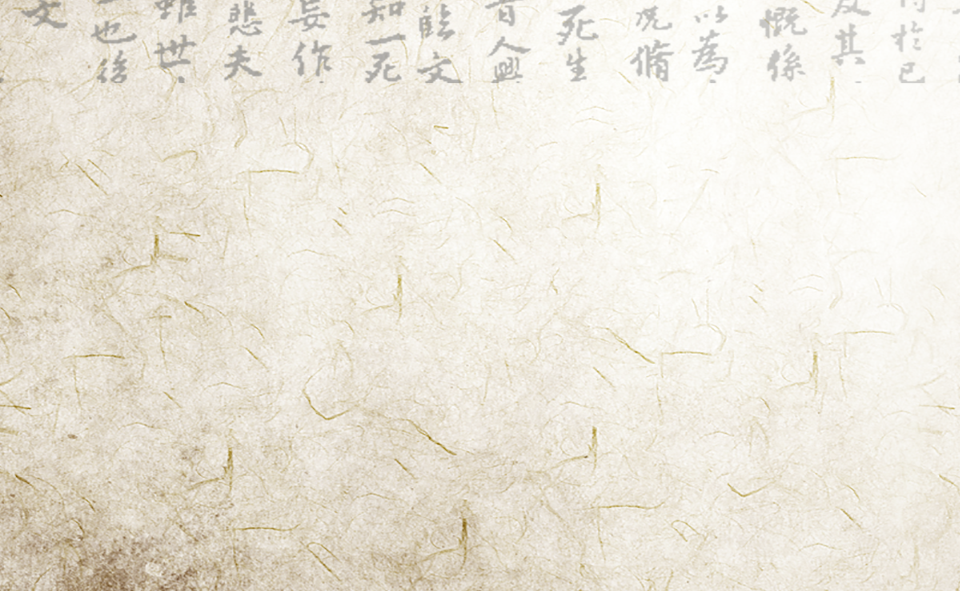 於已
及其
慨係
以為
况脩
死生
昔人興
能文
知一死
妄作
悲夫
雖世
也後
文